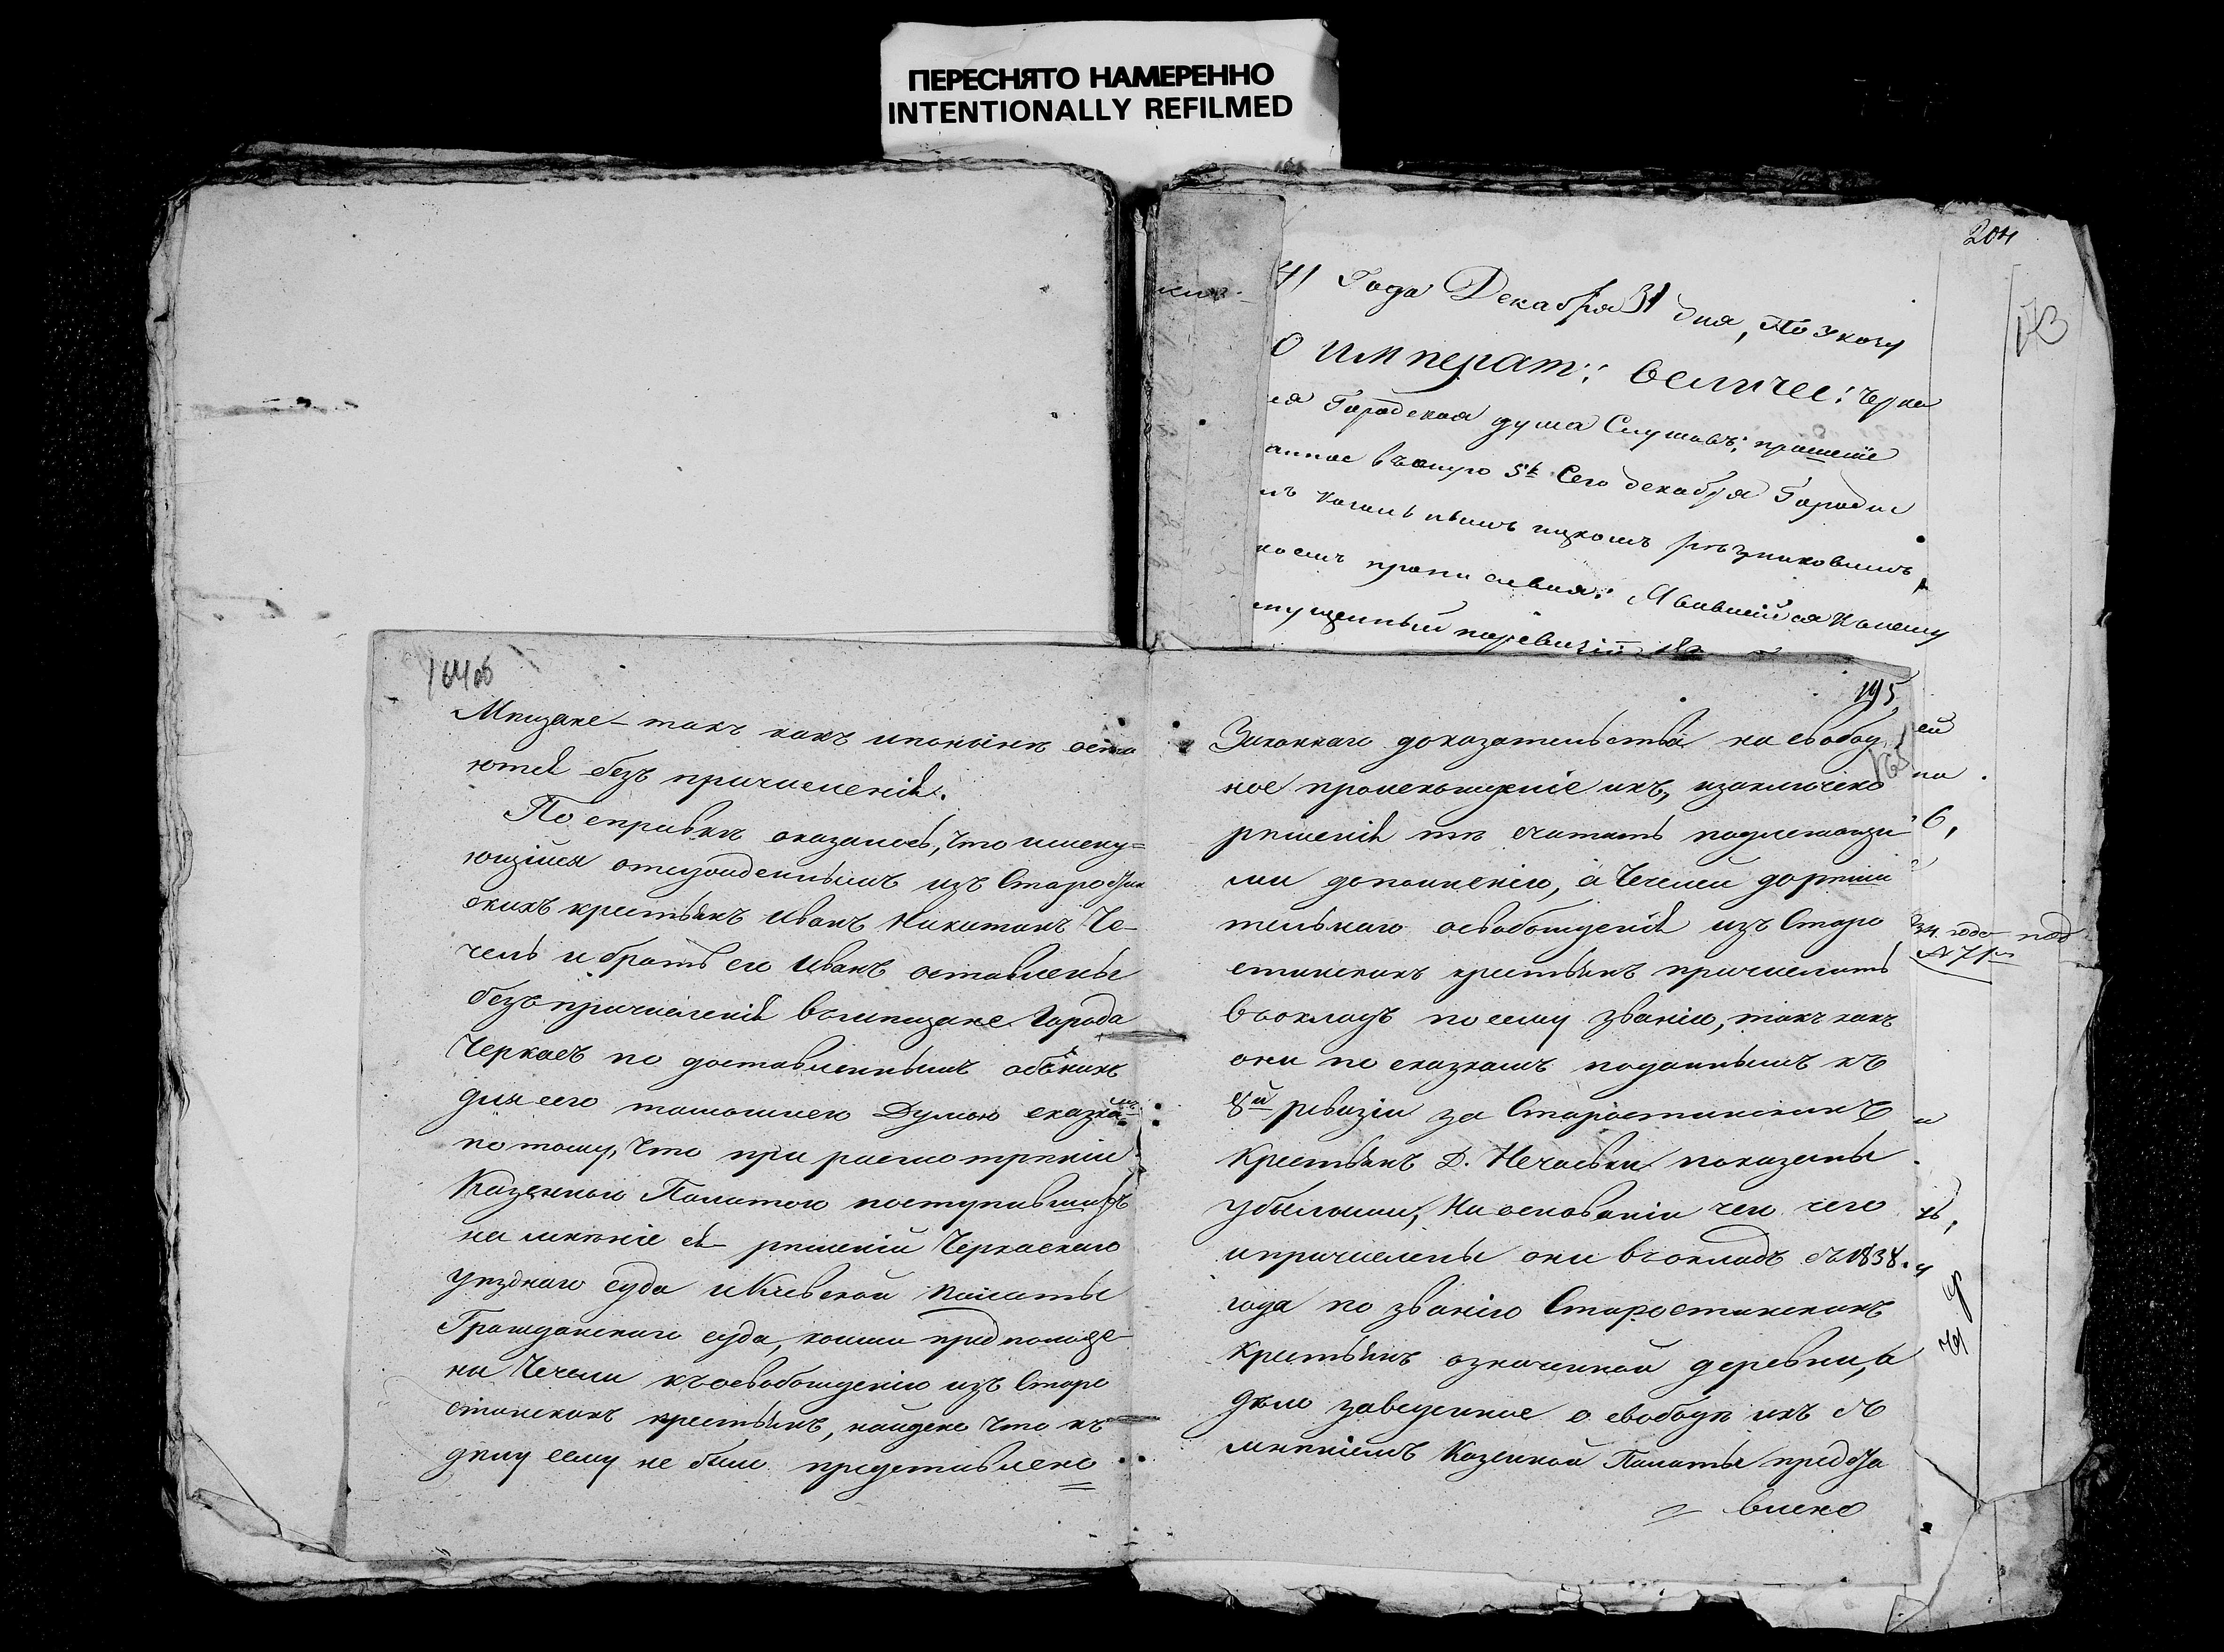 ПЕРЕСНЯТО НАМЕРЕННО
INTENTIONALLY REFILMED
204
41 Года Декабря 31 дня, По указу
О Императ: величес: Черка
ая Городская дума Слушавъ: прошеніе
анное въ оную 5г. Сего декабря
пропущенный
164об
Мѣщане – такъ какъ и понынѣ оста
ются безъ причисленія.
По справкѣ оказалось, что имену=
ющійся отсужденнымъ изъ Старостин
скихъ крестьянъ Иванъ Никитинъ Че-
чель и братъ его Иванъ оставлены
безъ причисленія въ мѣщане Города
Черкасъ по доставленнымъ объ нихъ
для сего тамошнею Думою сказкамъ
потому, что при расмотрѣніи
Казенною Палатою поступившихъ
на мнѣніе ея рѣшеній Черкаскаго
уѣзднаго суда и Кіевской Палаты
Гражданскаго суда, коими предположе
ны Чечели къ освобожденію изъ Старо
стинскихъ крестьянъ, найдено что къ
дѣлу сему не было представлено
195
165
Законнаго доказательства на свобод
ное происхожденіе ихъ, и заключено
рѣшенія тѣ считать подлежащи
ми дополненію, а Чечелей до рѣши
тельнаго освобожденія изъ Старо
стинскихъ крестьянъ причислить
въ окладъ по сему званію, такъ какъ
они по сказкамъ поданнымъ къ
8й ревизіи за Старостинскихъ
Крестьянъ Д. Нечаевки показаны
убылыми, На основаніи чего
и причислены они въ окладъ съ 1838.
года по званію Старостинскихъ
Крестьянъ означенной деревни, а
дѣло заведенное о свободѣ ихъ съ
мнѣніемъ Казенной Палаты предста
влено
34. года под
№ 7